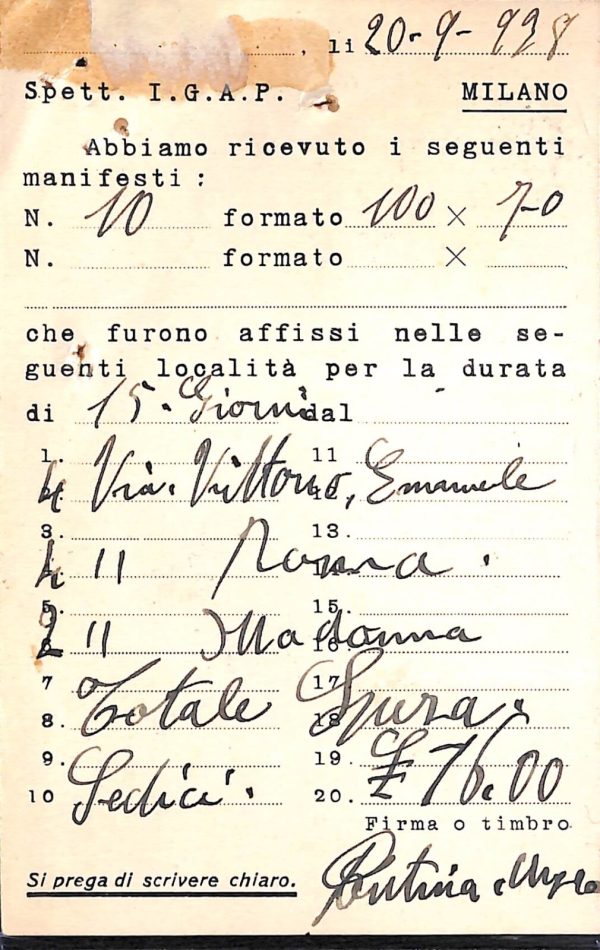 , li 20-9-938
Spett. I.G.A.P. MILANO
Abbiamo ricevuto i seguenti
manifesti:
N. 10 formato 100 × 70
N. formato ×
che furono affissi nelle se-
guenti località per la durata
di 15. Giorni dal
1. 11
4 Via. Vittorio, Emanuele
3. 13.
4 " Roma.
5. 15.
2 " Madonna
7 17
8. Totale Spesa. 18
9. 19. £ 16.00
10 Sedici. 20.
Firma o timbro
Si prega di scrivere chiaro.